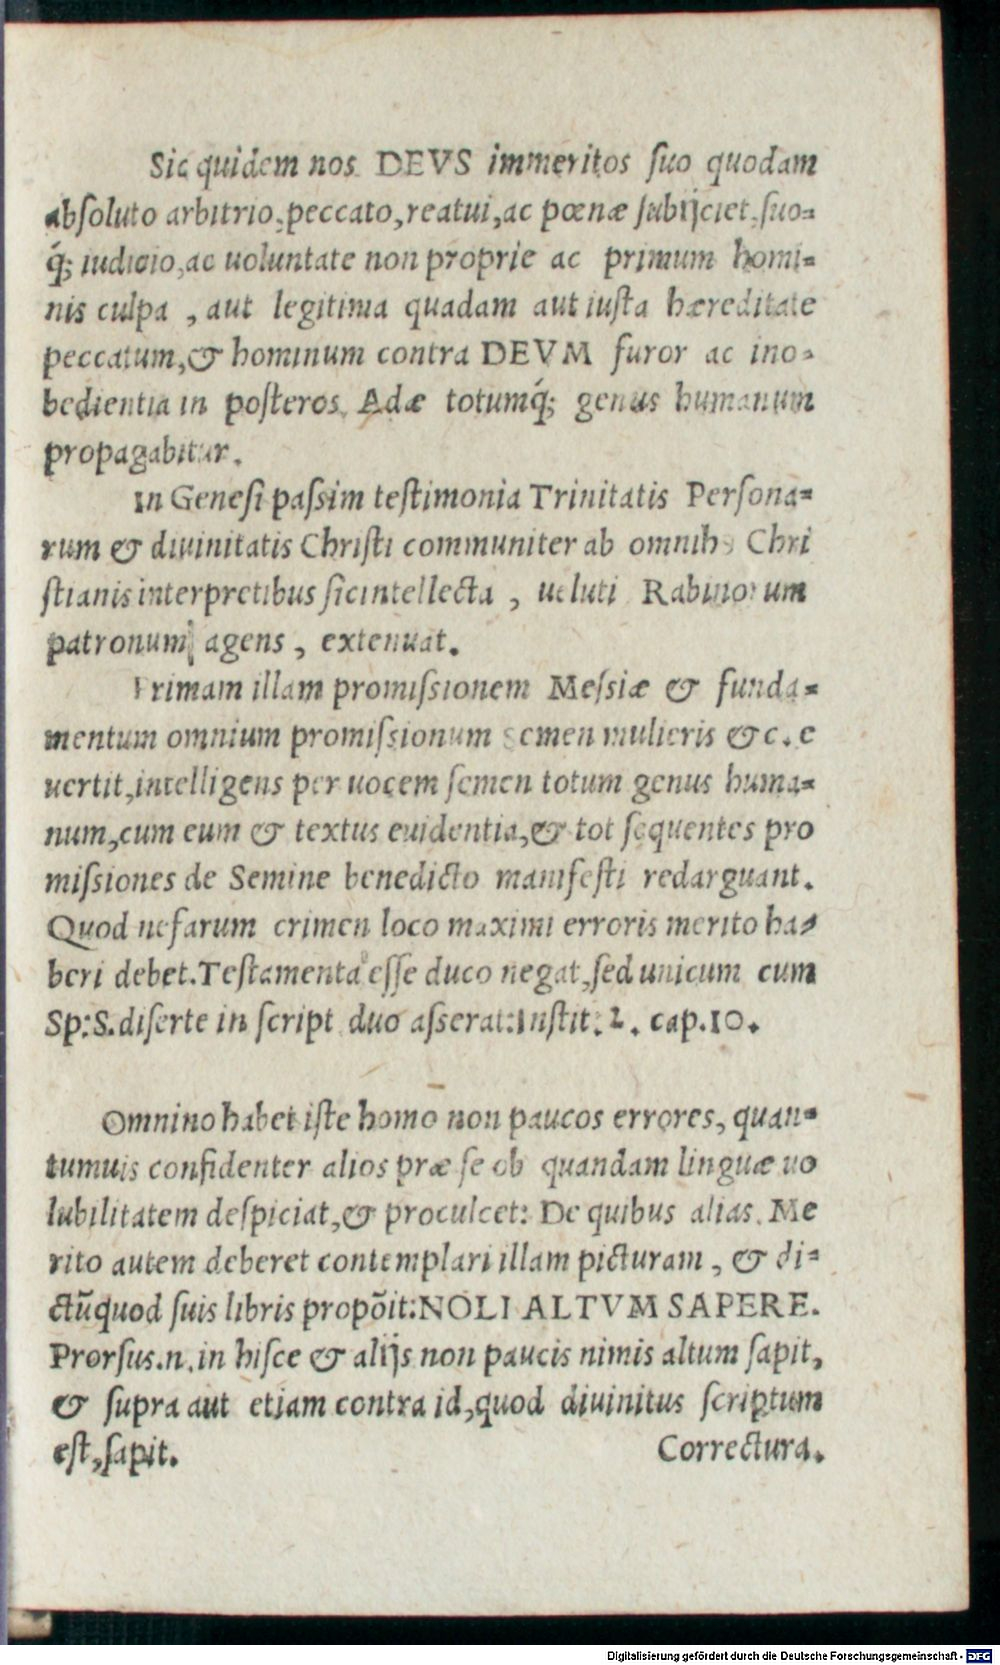 Sic quidem nos DEVS immeritos ſuo quodam
abſoluto arbitrio, peccato, reatui, ac pœnæ ſubijciet, ſuo-
q́; iudicio, ac uoluntate non proprie ac primum homi-
nis culpa , aut legitima quadam aut iuſta hæreditate
peccatum, & hominum contra DEVM furor ac ino-
bedientia in poſteros Adæ totumq́; genus humanum
propagabitur.
In Geneſi paſsim teſtimonia Trinitatis Perſona-
rum & diuinitatis Chriſti communiter ab omnib Chri
ſtianis interpretibus ſic intellecta , ueluti Rabinorum
patronum agens , extenuat.
Primam illam promiſsionem Meſsiæ & funda-
mentum omnium promiſsionum ſemen mulieris &c. e
uertit, intelligens per uocem ſemen totum genus huma-
num, cum eum & textus euidentia, & tot ſequentes pro
miſsiones de Semine benedicto manifeſti redarguant.
Quod nefarum crimen loco maximi erroris merito ha-
beri debet. Teſtamenta eſſe duco negat, ſed unicum cum
Sp: S. diſerte in ſcript duo aſserat: Inſtit: 2. cap. 10.
Omnino habet iſte homo non paucos errores, quan-
tumuis confidenter alios præ ſe ob quandam linguæ uo
lubilitatem deſpiciat, & proculcet: De quibus alias. Me
rito autem deberet contemplari illam picturam , & di-
ctũ quod ſuis libris propõit: NOLI ALTVM SAPERE.
Prorſus .n. in hiſce & alijs non paucis nimis altum ſapit,
& ſupra aut etiam contra id, quod diuinitus ſcriptum
eſt, ſapit.
Correctura.
Digitalisierung gefördert durch die Deutsche Forschungsgemeinschaft - DFG